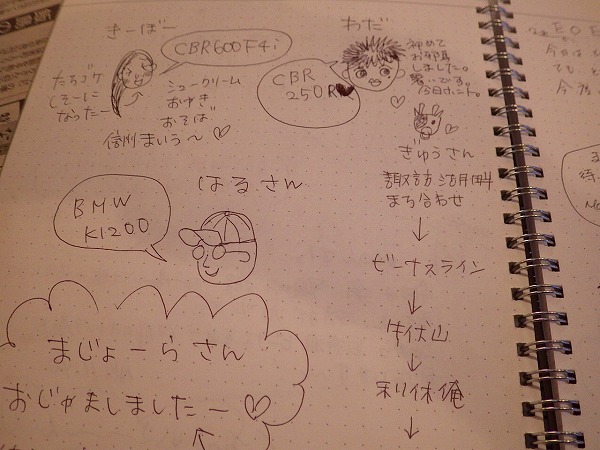 きーぼー
CBR600F4i
たちゴケ
しそーに
なったー
シュークリーム
おやき
おそば
信州まいう〜♡
わだ
CBR
250R
初めて
お邪魔
しました。
暑いです。
ぎゅうさん
諏訪湖畔
まち合わせ
↓
ビーナスライン
↓
牛伏山
↓
利休俺
↓
はるさん
BMW
K1200
まじょーらさん
おじゃましましたー♡
今日は